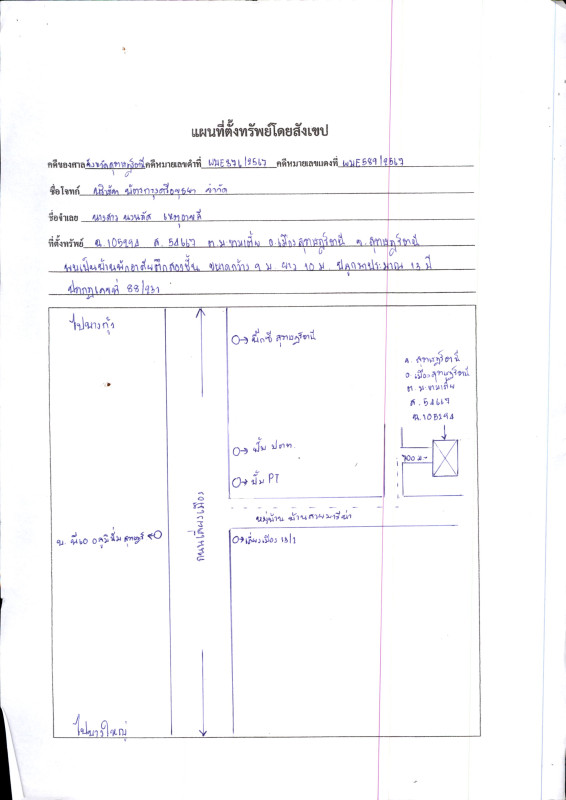 แผนที่ตั้งทรัพย์โดยสังเขป
คดีของศาล จังหวัดสุราษฎร์ธานี คดีหมายเลขดำที่ ผบE876/2567 คดีหมายเลขแดงที่ ผบE589/2567
ชื่อโจทก์ บริษัท จำกัด
ชื่อจำเลย นางสาว
ที่ตั้งทรัพย์ ฉ.105294 ส.54667 ต.มะขามเตี้ย อ.เมืองสุราษฎร์ธานี จ.สุราษฎร์ธานี
พบเป็นบ้านพักอาศัยตึกสองชั้น ขนาดกว้าง 9 ม. ยาว 10 ม. ปลูกมาประมาณ 13 ปี
ปรากฏเลขที่ 88/931
ไปบางกุ้ง
บิ๊กซี สุราษฎร์ธานี
จ. สุราษฎร์ธานี
อ. เมืองสุราษฎร์ธานี
ต. มะขามเตี้ย
ส. 54667
ฉ. 105294
ปั๊ม ปตท.
ปั๊ม PT
700 ม.
หมู่บ้าน
ถนนเลี่ยงเมือง
เลี่ยงเมือง 13/1
ไปบางใหญ่